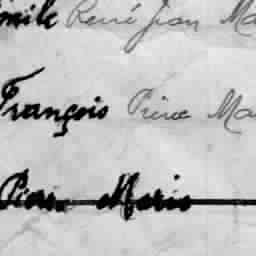 Émile René Jean Ma
François Pierre Ma
Pierre Marie